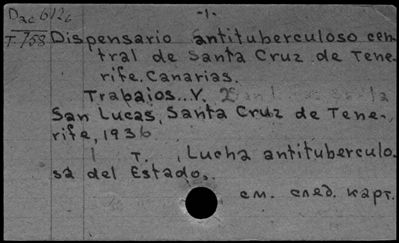 Dac 6/26 -1-
T. 758 Dispensario antituberculoso cen-
tral de Santa Cruz de Tene-
rife. Canarias.
Trabajos. V.
San Lucas, Santa Cruz de Tene-
rife, 1936
1 т. , Lucha antituberculo-
sa del Estado,.
см. след. карт.